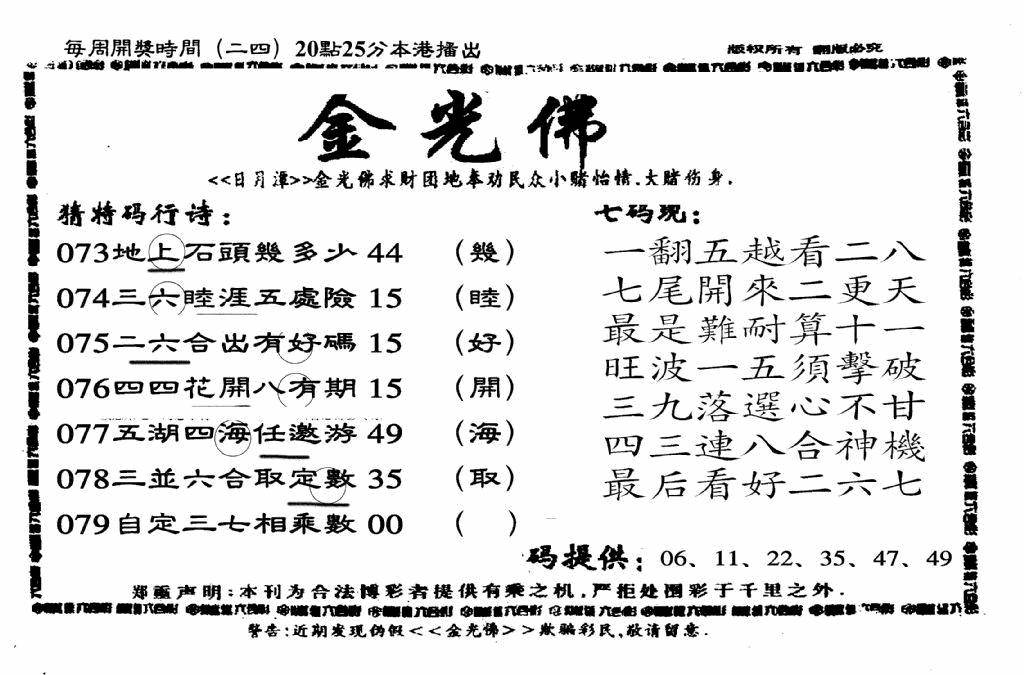 每周開獎時間（二四）20點25分本港播出
版权所有 翻版必究
金光佛
<<日月潭>>金光佛求财团地奉劝民众小赌怡情.大赌伤身.
猜特码行诗：
073地上石頭幾多少44 （幾）
074三六睦涯五處險15 （睦）
075二六合出有好碼15 （好）
076四四花開八有期15 （開）
077五湖四海任邀游49 （海）
078三並六合取定數35 （取）
079自定三七相乘數00 （ ）
七码现：
一翻五越看二八
七尾開來二更天
最是難耐算十一
旺波一五須擊破
三九落選心不甘
四三連八合神機
最后看好二六七
码提供：06、11、22、35、47、49
郑重声明：本刊为合法博彩者提供有乘之机，严拒处圈彩于千里之外.
警告：近期发现伪假<<金光佛>>欺骗彩民，敬请留意.